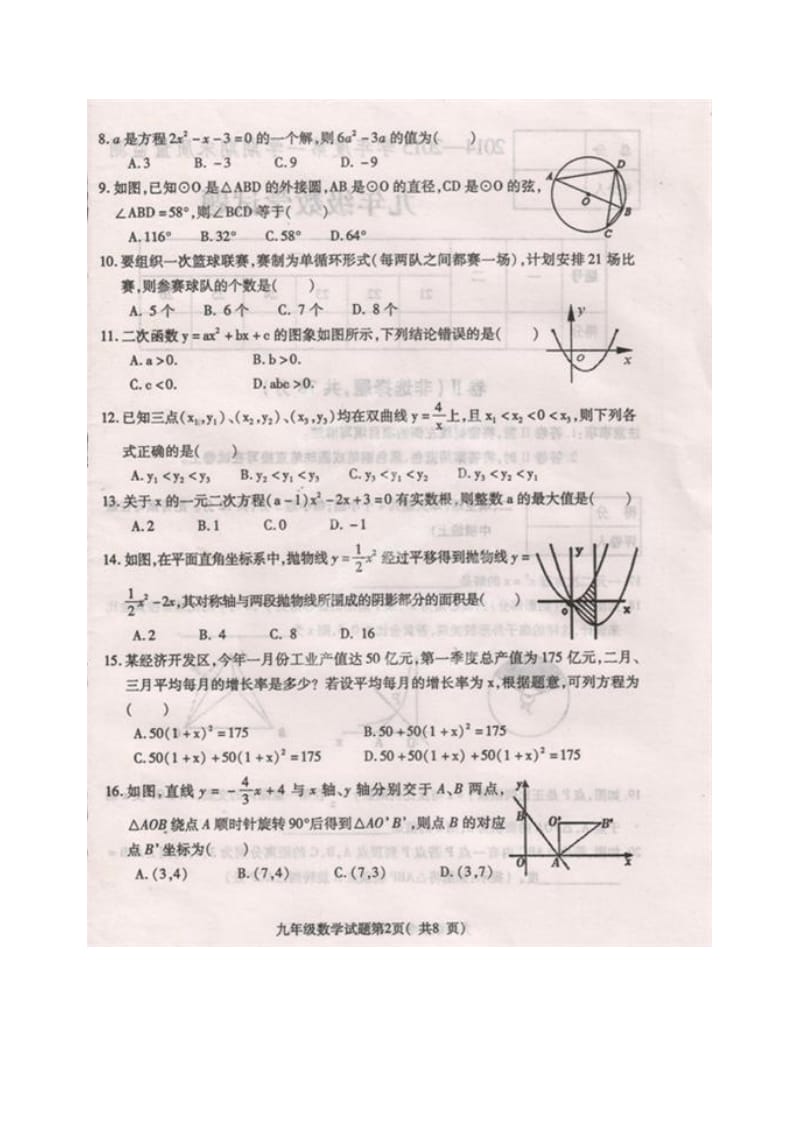 8. a 是方程 2x² - x - 3 = 0 的一个解,则 6a² - 3a 的值为(  )
A. 3 B. -3 C. 9 D. -9
9. 如图,已知⊙O 是△ABD 的外接圆,AB 是⊙O 的直径,CD 是⊙O 的弦,
∠ABD = 58°,则∠BCD 等于(  )
A. 116° B. 32° C. 58° D. 64°
A
D
O
B
C
10. 要组织一次篮球联赛,赛制为单循环形式(每两队之间都赛一场),计划安排 21 场比
赛,则参赛球队的个数是(  )
A. 5 个 B. 6 个 C. 7 个 D. 8 个
11. 二次函数 y = ax² + bx + c 的图象如图所示,下列结论错误的是(  )
A. a > 0. B. b > 0.
C. c < 0. D. abc > 0.
y
O
x
12. 已知三点(x₁,y₁)、(x₂,y₂)、(x₃,y₃)均在双曲线 y = 4/x 上,且 x₁ < x₂ < 0 < x₃,则下列各
式正确的是(  )
A. y₁ < y₂ < y₃ B. y₂ < y₁ < y₃ C. y₃ < y₁ < y₂ D. y₃ < y₂ < y₁
13. 关于 x 的一元二次方程(a - 1)x² - 2x + 3 = 0 有实数根,则整数 a 的最大值是(  )
A. 2 B. 1 C. 0 D. -1
14. 如图,在平面直角坐标系中,抛物线 y = 1/2 x² 经过平移得到抛物线 y =
1/2 x² - 2x,其对称轴与两段抛物线所围成的阴影部分的面积是(  )
A. 2 B. 4 C. 8 D. 16
y
o
x
15. 某经济开发区,今年一月份工业产值达 50 亿元,第一季度总产值为 175 亿元,二月、
三月平均每月的增长率是多少? 若设平均每月的增长率为 x,根据题意,可列方程为
(  )
A. 50(1 + x)² = 175 B. 50 + 50(1 + x)² = 175
C. 50(1 + x) + 50(1 + x)² = 175 D. 50 + 50(1 + x) + 50(1 + x)² = 175
16. 如图,直线 y = - 4/3 x + 4 与 x 轴、y 轴分别交于 A、B 两点,
△AOB 绕点 A 顺时针旋转 90°后得到△AO'B',则点 B 的对应
点 B'坐标为(  )
A. (3,4) B. (7,4) C. (7,3) D. (3,7)
y
B
O'
B'
O
A
x
九年级数学试题第2页( 共8 页)